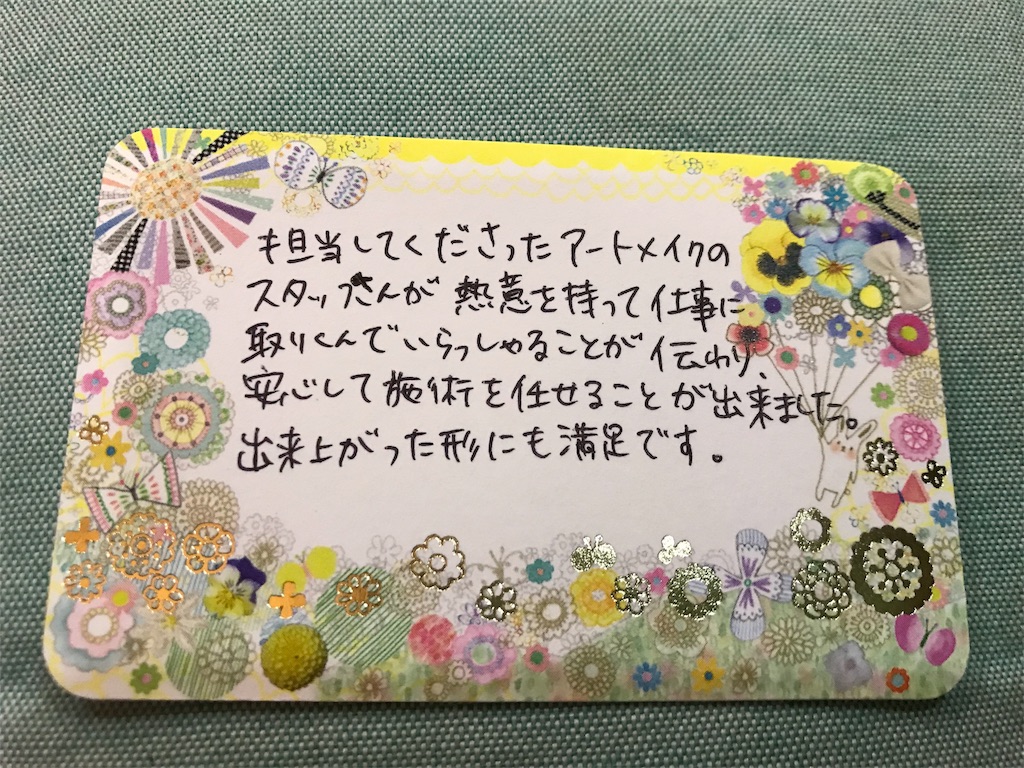 担当してくださったアートメイクの
スタッフさんが熱意を持って仕事に
取りくんでいらっしゃることが伝わり、
安心して施術を任せることが出来ました。
出来上がった形にも満足です。